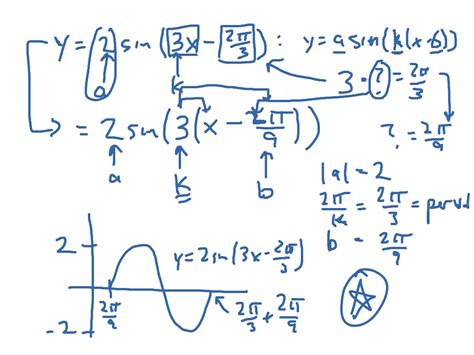 y = 2 sin(3x − 2π/3) : y = a sin(k(x−b))
a
k
3 · ? = 2π/3
= 2 sin(3(x − 2π/9))
? = 2π/9
a k b
|a| = 2
2π/k = 2π/3 = period
b = 2π/9
2
y = 2 sin(3x − 2π/3)
2π/9
2π/3 + 2π/9
-2